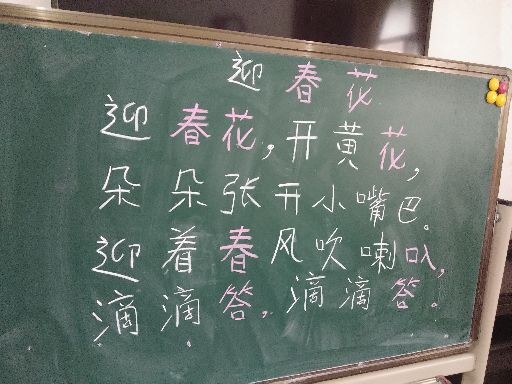 迎春花
迎春花,开黄花,
朵朵张开小嘴巴。
迎着春风吹喇叭,
滴滴答,滴滴答。